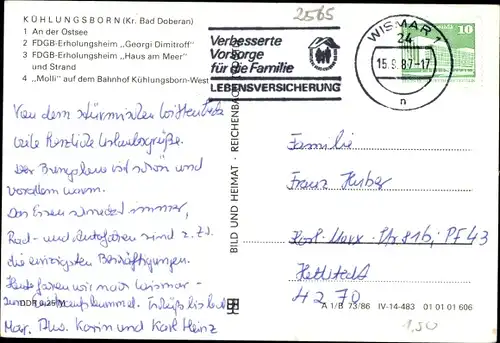 KÜHLUNGSBORN (Kr. Bad Doberan)
1 An der Ostsee
2 FDGB-Erholungsheim „Georgi Dimitroff“
3 FDGB-Erholungsheim „Haus am Meer“
und Strand
4 „Molli“ auf dem Bahnhof Kühlungsborn-West
Von dem stürmischen
viele herzliche Urlaubsgrüße.
Der ist schön und
vor allem warm.
Das Essen schmeckt immer,
Rad- und Autofahren sind z. Zt.
die einzigsten Beschäftigungen.
Heute fahren wir nach Wismar -
zum Einkaufsbummel. Tschüß bis bald
Mar. Karin und Karl Heinz
DDR 0,25 M
BILD UND HEIMAT · REICHENBACH
2565
Verbesserte
Vorsorge
für die Familie
LEBENSVERSICHERUNG
WISMAR 1
24
15.9.87-17
n
10
Familie
Franz Huber
Karl-Marx-Str. 81b, PF 43
Hettstedt
4270
A 1/B 73/86 IV-14-483 01 01 01 606
1,50